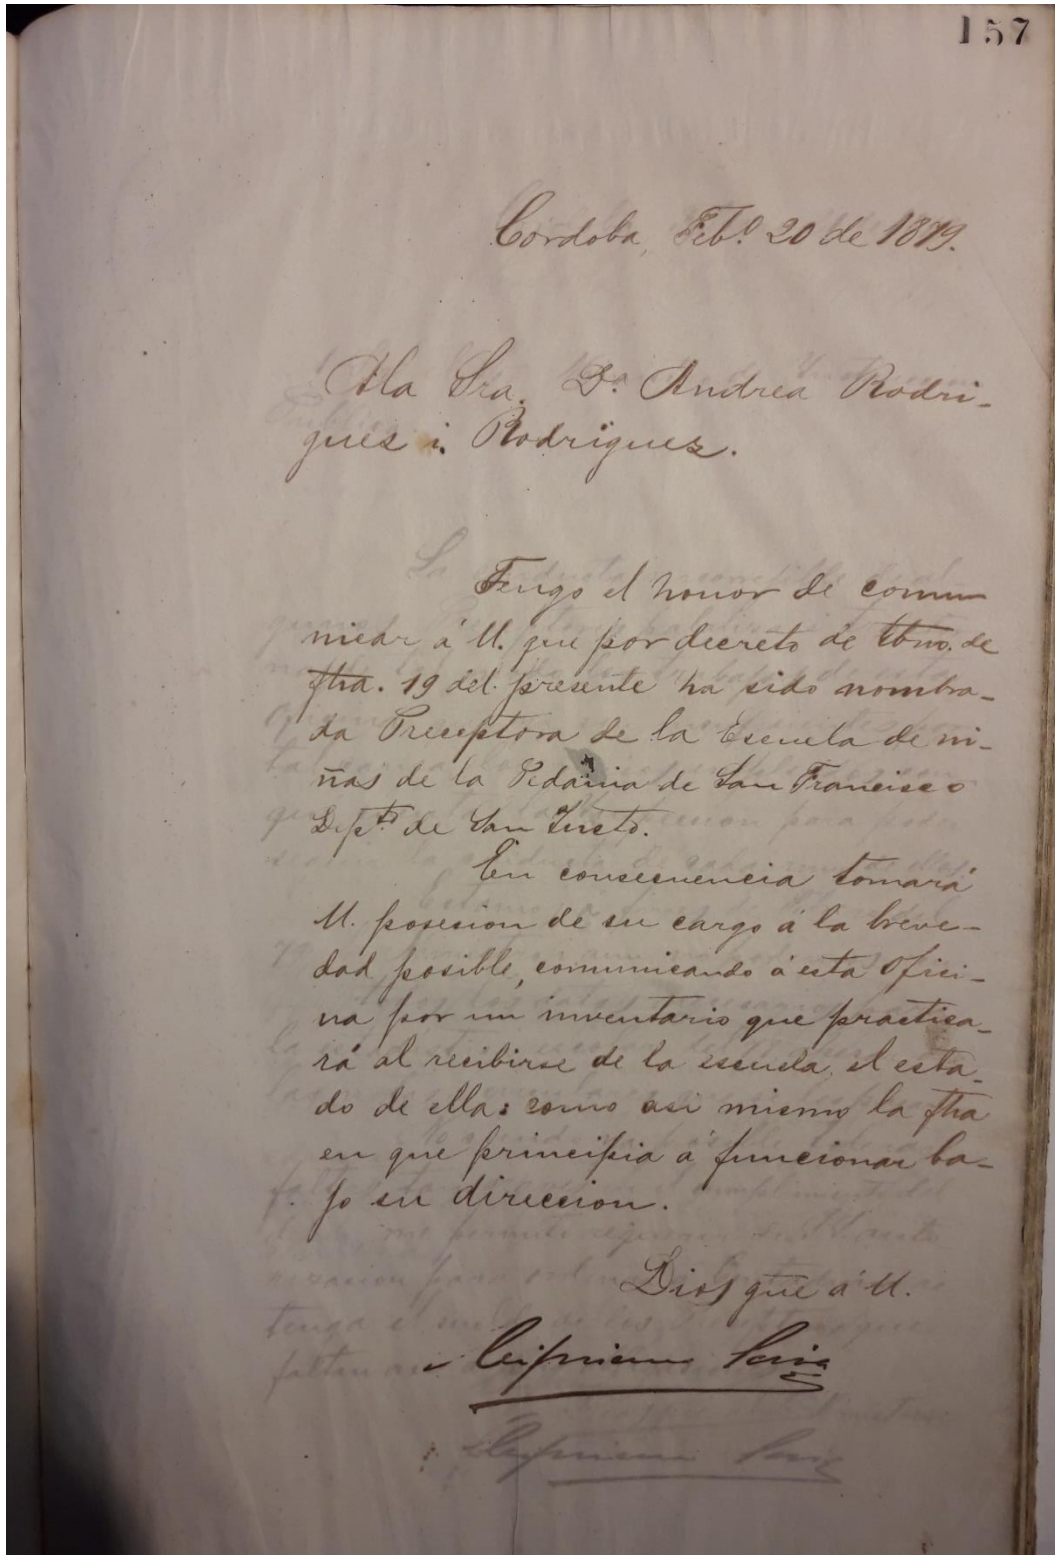 157
Córdoba, Feb.º 20 de 1879.
A la Sra. Dª Andrea Rodri-
gues i Rodriguez.
Tengo el honor de comu
nicar á U. que por decreto de de
fha. 19 del presente ha sido nombra-
da Preceptora de la Escuela de ni-
ñas de la Pedania de San Francisco
Depto de San Justo.
En consecuencia tomará
U. posesion de su cargo á la breve-
dad posible, comunicando á esta Ofici-
na por un inventario que practica-
rá al recibirse de la escuela, el esta-
do de ella: como asi mismo la fha
en que principia á funcionar ba-
jo su direccion.
Dios gue á U.